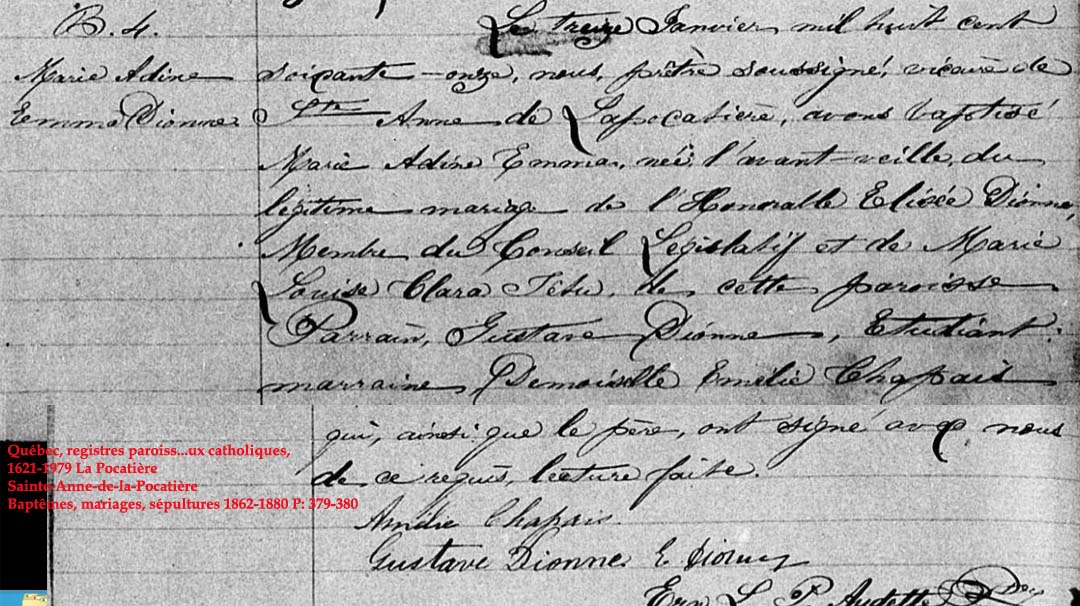 B. 4.
Marie Adine
Emma Dionne
Le treize Janvier mil huit cent
soixante-onze, nous, prêtre soussigné, vicaire de
Ste Anne de Lapocatière, avons baptisé
Marie Adine Emma, née l'avant-veille, du
légitime mariage de l'Honorable Elisée Dionne,
Membre du Conseil Législatif et de Marie
Louise Clara Têtu, de cette paroisse
Parrain, Gustave Dionne, Etudiant;
marraine, Demoiselle Emélie Chapais
qui, ainsi que le père, ont signé avec nous
de ce requis, lecture faite
Chapais
Gustave Dionne E. Dionne
L. P. Audette
Québec, registres paroiss...ux catholiques,
1621-1979 La Pocatière
Sainte-Anne-de-la-Pocatière
Baptêmes, mariages, sépultures 1862-1880 P: 379-380